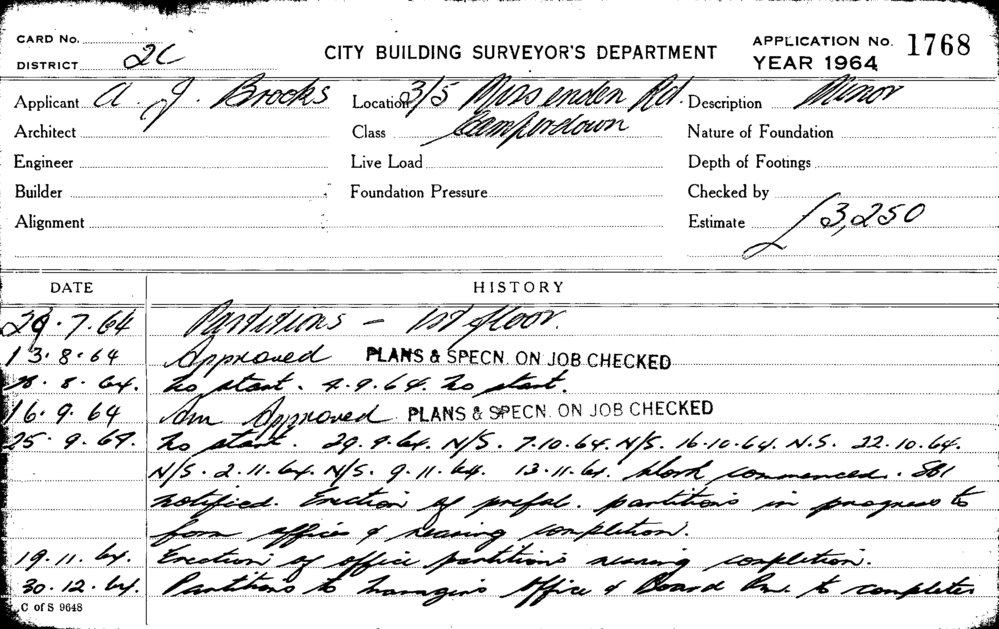 CARD No.
DISTRICT 2C
CITY BUILDING SURVEYOR'S DEPARTMENT
APPLICATION No. 1768
YEAR 1964
Applicant A. J. Brooks Location 3/5 Missenden Rd. Description Minor
Architect Class Camperdown Nature of Foundation
Engineer Live Load Depth of Footings
Builder Foundation Pressure Checked by
Alignment Estimate £3,250
DATE HISTORY
29.7.64 Partitions - 1st floor.
13.8.64 Approved PLANS & SPECN. ON JOB CHECKED
28.8.64. No start. 4.9.64. No start.
16.9.64 Am Approved PLANS & SPECN. ON JOB CHECKED
25.9.64. No start. 29.9.64. N/S. 7.10.64. N/S. 16.10.64. N.S. 22.10.64.
N/S. 2.11.64. N/S. 9.11.64. 13.11.64. Work commenced. SBI
notified. Erection of prefab. partitions in progress to
form offices & nearing completion.
19.11.64. Erection of office partitions nearing completion.
30.12.64. Partitions to managers Office & Board Rm. to complete
C of S 9648